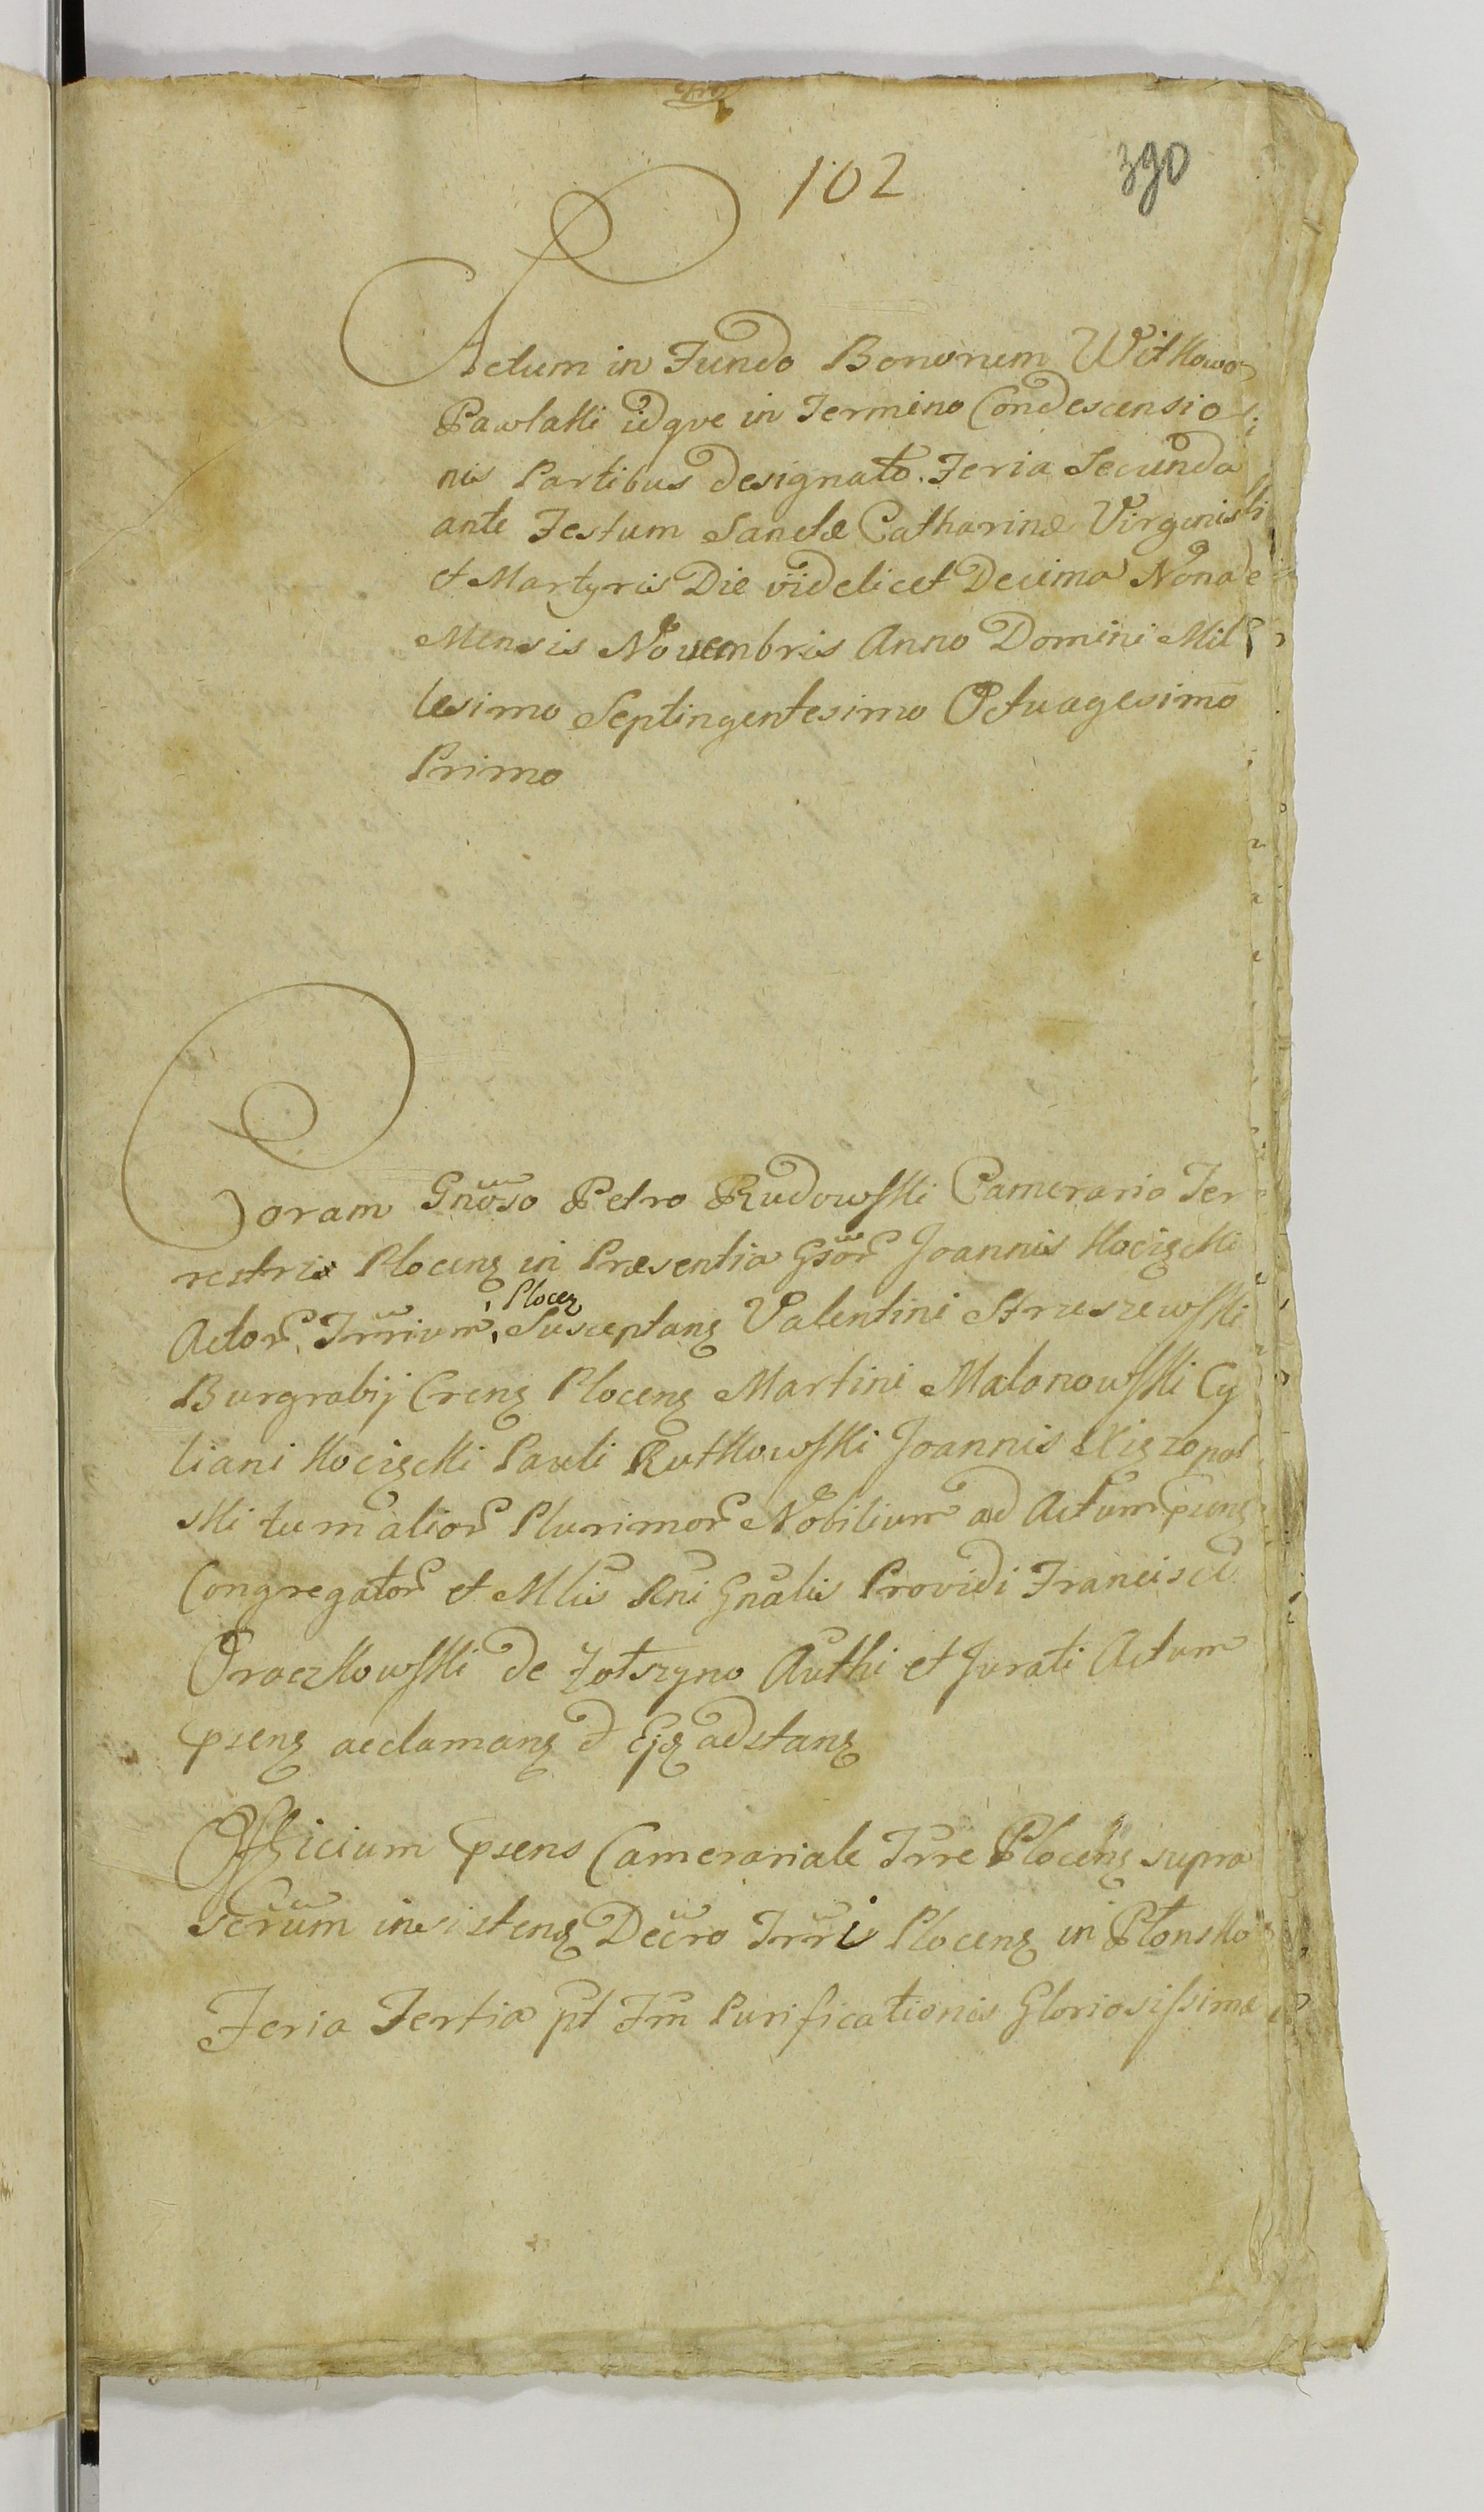 102
390
Actum in Fundo Bonorum Witkowo
Pawlaki idque in Termino Condescensio
nis Partibus designato. Feria Secunda
ante Festum Sanctæ Catharinæ Virginis
et Martyris Die videlicet Decima Nona
Mensis Novembris Anno Domini Mil
lesimo Septingentesimo Octuagesimo
Primo
Coram Gnoso Petro Rudowski Camerario Ter
restris Plocenꝫ in Præsentia Gsor Joannis Kocięcki
Actor, Trrium, Plocen Susceptanꝫ Valentini Struszewski
Burgrabij Crenꝫ Plocenꝫ Martini Malanowski Cy
liani Kocięcki Pauli Rutkowski Joannis Xięzopol
ski tum alior Plurimor Nobilium ad Actum psenꝫ
Congregator et Mlis Rni Gnalis Providi Francisci
Oraczkowski de Żotszyno Authi et Jurati Actum
psenꝫ acclamanꝫ d Ejꝫ adstanꝫ
Officium psens Camerariale Trre Plocenꝫ supra
scrum insistenꝫ Decro Trris Plocenꝫ in Płonsko
Feria Tertia pt Fm Purificationis Gloriosissimæ